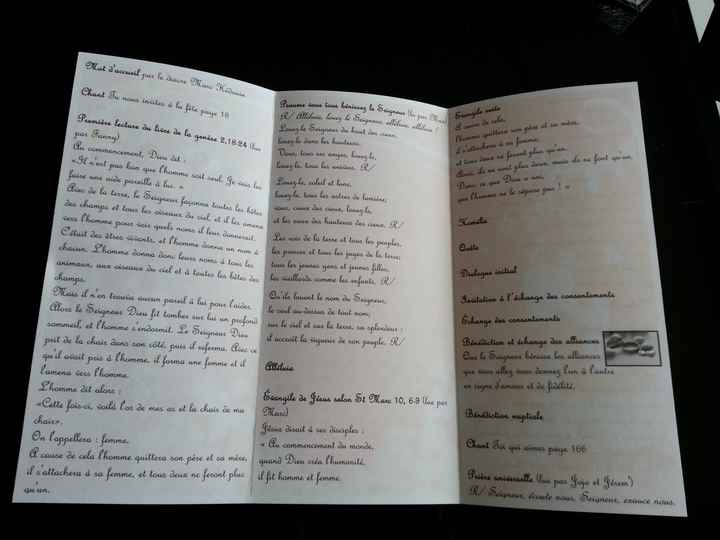 Mot d'accueil par le diacre Marc Hédouin
Chant Tu nous invites à la fête page 18
Première lecture du livre de la genèse 2,18-24 (lue
par Fanny)
Au commencement, Dieu dit :
«Il n'est pas bon que l'homme soit seul. Je vais lui
faire une aide pareille à lui. »
Avec de la terre, le Seigneur façonna toutes les bêtes
des champs et tous les oiseaux du ciel, et il les amena
vers l'homme pour voir quels noms il leur donnerait.
C'était des êtres vivants, et l'homme donna un nom à
chacun. L'homme donna donc leurs noms à tous les
animaux, aux oiseaux du ciel et à toutes les bêtes des
champs.
Mais il n'en trouva aucun pareil à lui pour l'aider.
Alors le Seigneur Dieu fit tomber sur lui un profond
sommeil, et l'homme s'endormit. Le Seigneur Dieu
prit de la chair dans son côté, puis il referma. Avec ce
qu'il avait pris à l'homme, il forma une femme et il
l'amena vers l'homme.
L'homme dit alors :
«Cette fois-ci, voilà l'os de mes os et la chair de ma
chair».
On l'appellera : femme.
A cause de cela l'homme quittera son père et sa mère,
il s'attachera à sa femme, et tous deux ne feront plus
qu'un.
Psaume vous tous bénissez le Seigneur (lu par Marc)
R/ Alléluia, louez le Seigneur, alléluia, alléluia !
Louez le Seigneur du haut des cieux,
louez-le dans les hauteurs.
Vous, tous ses anges, louez-le,
louez-le, tous les univers. R/
Louez-le, soleil et lune,
louez-le, tous les astres de lumière;
vous, cieux des cieux, louez-le,
et les eaux des hauteurs des cieux. R/
Les rois de la terre et tous les peuples,
les princes et tous les juges de la terre;
tous les jeunes gens et jeunes filles,
les vieillards comme les enfants. R/
Qu'ils louent le nom du Seigneur,
le seul au-dessus de tout nom;
sur le ciel et sur la terre, sa splendeur :
il accroît la vigueur de son peuple. R/
Alléluia
Evangile de Jésus selon St Marc 10, 6-9 (lue par
Marc)
Jésus disait à ses disciples :
« Au commencement du monde,
quand Dieu créa l'humanité,
il fit homme et femme.
Evangile suite
A cause de cela,
l'homme quittera son père et sa mère,
il s'attachera à sa femme,
et tous deux ne feront plus qu'un.
Ainsi, ils ne sont plus deux, mais ils ne font qu'un.
Donc, ce que Dieu a uni,
que l'homme ne le sépare pas ! »
Homélie
Quête
Dialogue initial
Invitation à l'échange des consentements
Echange des consentements
Bénédiction et échange des alliances
Que le Seigneur bénisse les alliances
que vous allez vous donner l'un à l'autre
en signe d'amour et de fidélité.
Bénédiction nuptiale
Chant Toi qui aimes page 166
Prière universelle (lue par Jojo et Jérem')
R/ Seigneur, écoute nous, Seigneur, exauce nous.